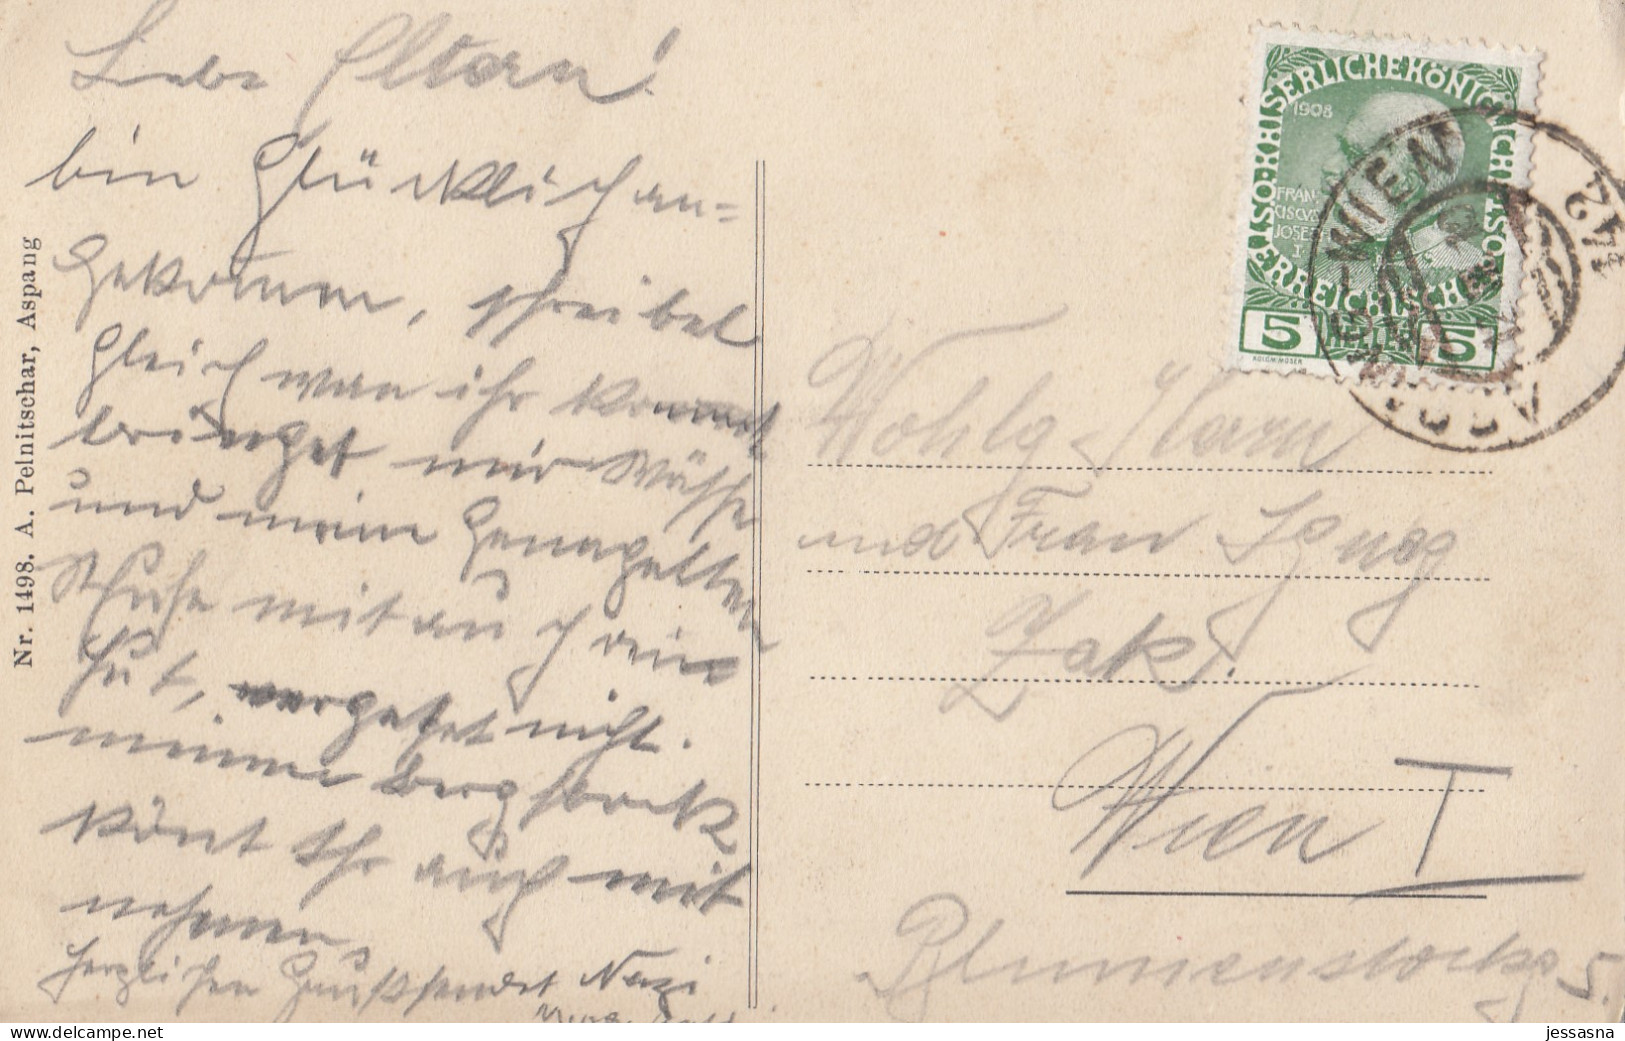 Liebe Eltern!
bin glücklich an=
gekommen, schreibe
gleich wan ihr kommt
bringet mir Wäsche
und meine genagelten
Schuhe mit auch ein
Hut, vergeßet nicht.
meine Bergstock
könt Ihr auch mit
nehmen.
Herzlichen Gruß sendet Nazi
Nr. 1498. A. Pelnitschar, Aspang
KAISERLICHEKÖNIGLICHE
ÖSTERREICHISCHE
1908
FRAN-
CISCVS
JOSEF
I
5 HELLER 5
KOLOM. MOSER
WIEN
Wohlg. Herrn
und Frau Ignaz
Zak.
Wien I
Blumenstockg 5.
jessasna